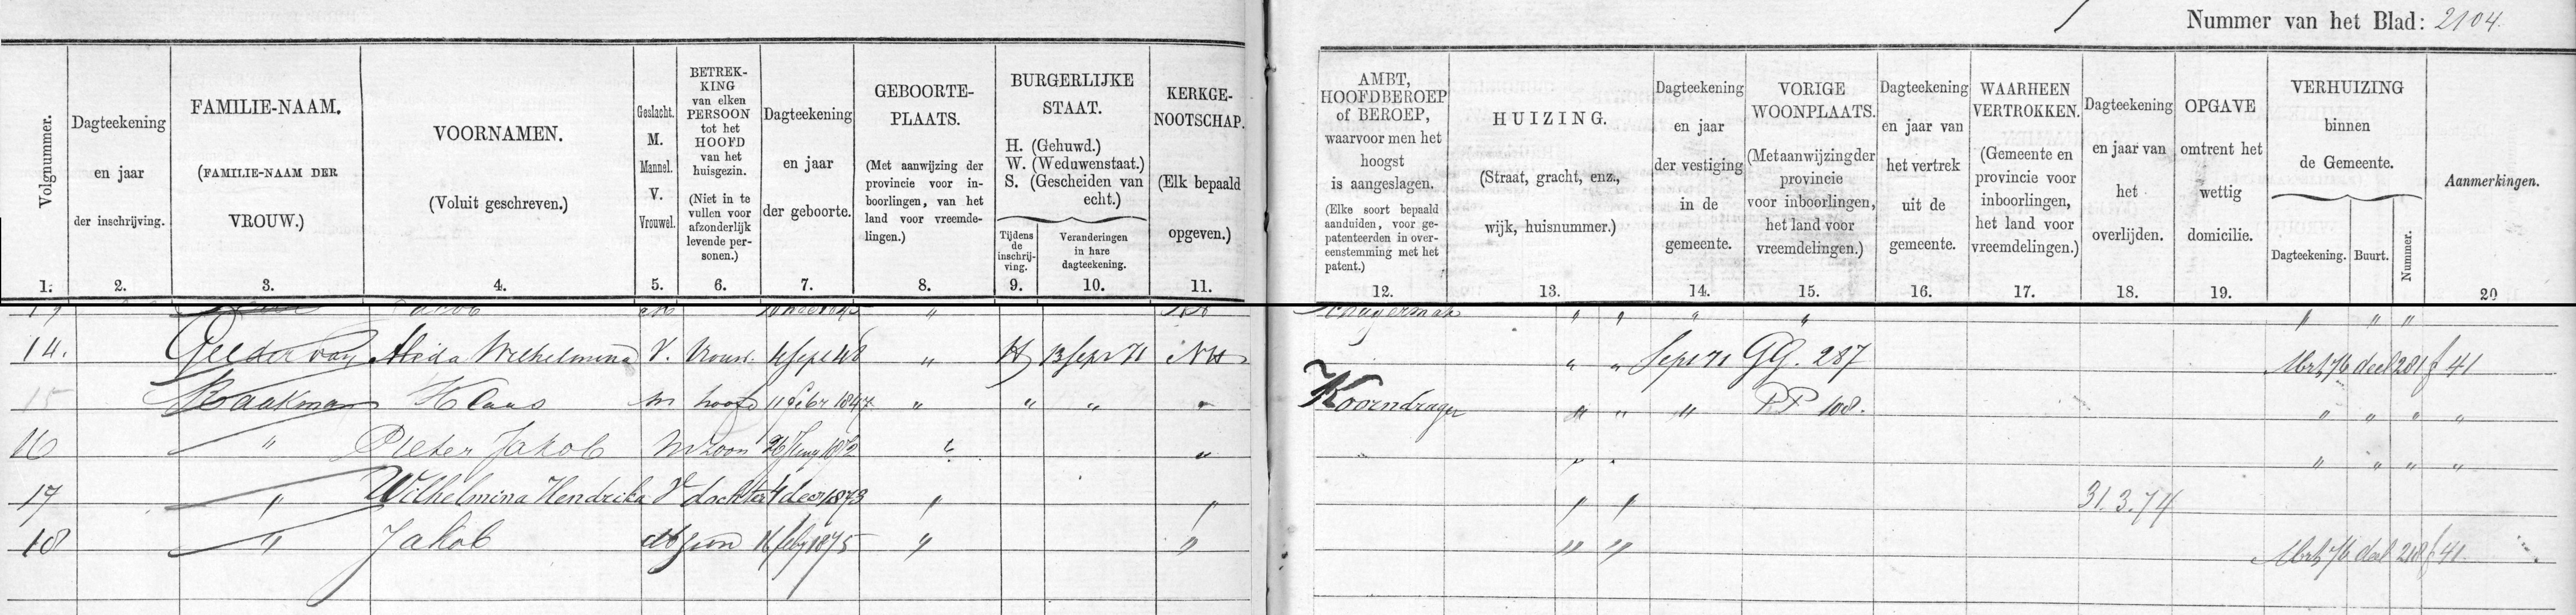 Nummer van het Blad: 2104.
Volgnummer.
1.
Dagteekening
en jaar
der inschrijving.
2.
FAMILIE-NAAM.
(FAMILIE-NAAM DER
VROUW.)
3.
VOORNAMEN.
(Voluit geschreven.)
4.
Geslacht.
M.
Mannel.
V.
Vrouwel.
5.
BETREK-
KING
van elken
PERSOON
tot het
HOOFD
van het
huisgezin.
(Niet in te
vullen voor
afzonderlijk
levende per-
sonen.)
6.
Dagteekening
en jaar
der geboorte.
7.
GEBOORTE-
PLAATS.
(Met aanwijzing der
provincie voor in-
boorlingen, van het
land voor vreemde-
lingen.)
8.
BURGERLIJKE
STAAT.
H. (Gehuwd.)
W. (Weduwenstaat.)
S. (Gescheiden van
echt.)
Tijdens
de
inschrij-
ving.
9.
Veranderingen
in hare
dagteekening.
10.
KERKGE-
NOOTSCHAP.
(Elk bepaald
opgeven.)
11.
AMBT,
HOOFDBEROEP
of BEROEP,
waarvoor men het
hoogst
is aangeslagen.
(Elke soort bepaald
aanduiden, voor ge-
patenteerden in over-
eenstemming met het
patent.)
12.
HUIZING.
(Straat, gracht, enz.,
wijk, huisnummer.)
13.
Dagteekening
en jaar
der vestiging
in de
gemeente.
14.
VORIGE
WOONPLAATS.
(Met aanwijzing der
provincie
voor inboorlingen,
het land voor
vreemdelingen.)
15.
Dagteekening
en jaar van
het vertrek
uit de
gemeente.
16.
WAARHEEN
VERTROKKEN.
(Gemeente en
provincie voor
inboorlingen,
het land voor
vreemdelingen.)
17.
Dagteekening
en jaar van
het
overlijden.
18.
OPGAVE
omtrent het
wettig
domicilie.
19.
VERHUIZING
binnen
de Gemeente.
Dagteekening.
Buurt.
Nummer.
Aanmerkingen.
20
14. Gelder van Alida Wilhelmina V. Vrouw. 4 Sept 48 " H 13 Sept 71 NH " " Sept 71 GG. 287 Mrt 76 deel 281 f 41
15 Raakman Klaas m hoofd 11 febr 1847 " " " " Koorndrager " " " PP 108. " " " "
16 " Pieter Jakob m zoon 26 1872 " " " " " " " "
17 " Wilhelmina Hendrika V dochter 4 decr 1873 " " " " 31.3.74
18 " Jakob M zoon 16 feby 1875 " " " " Mrt 76 deel 218 f 41.